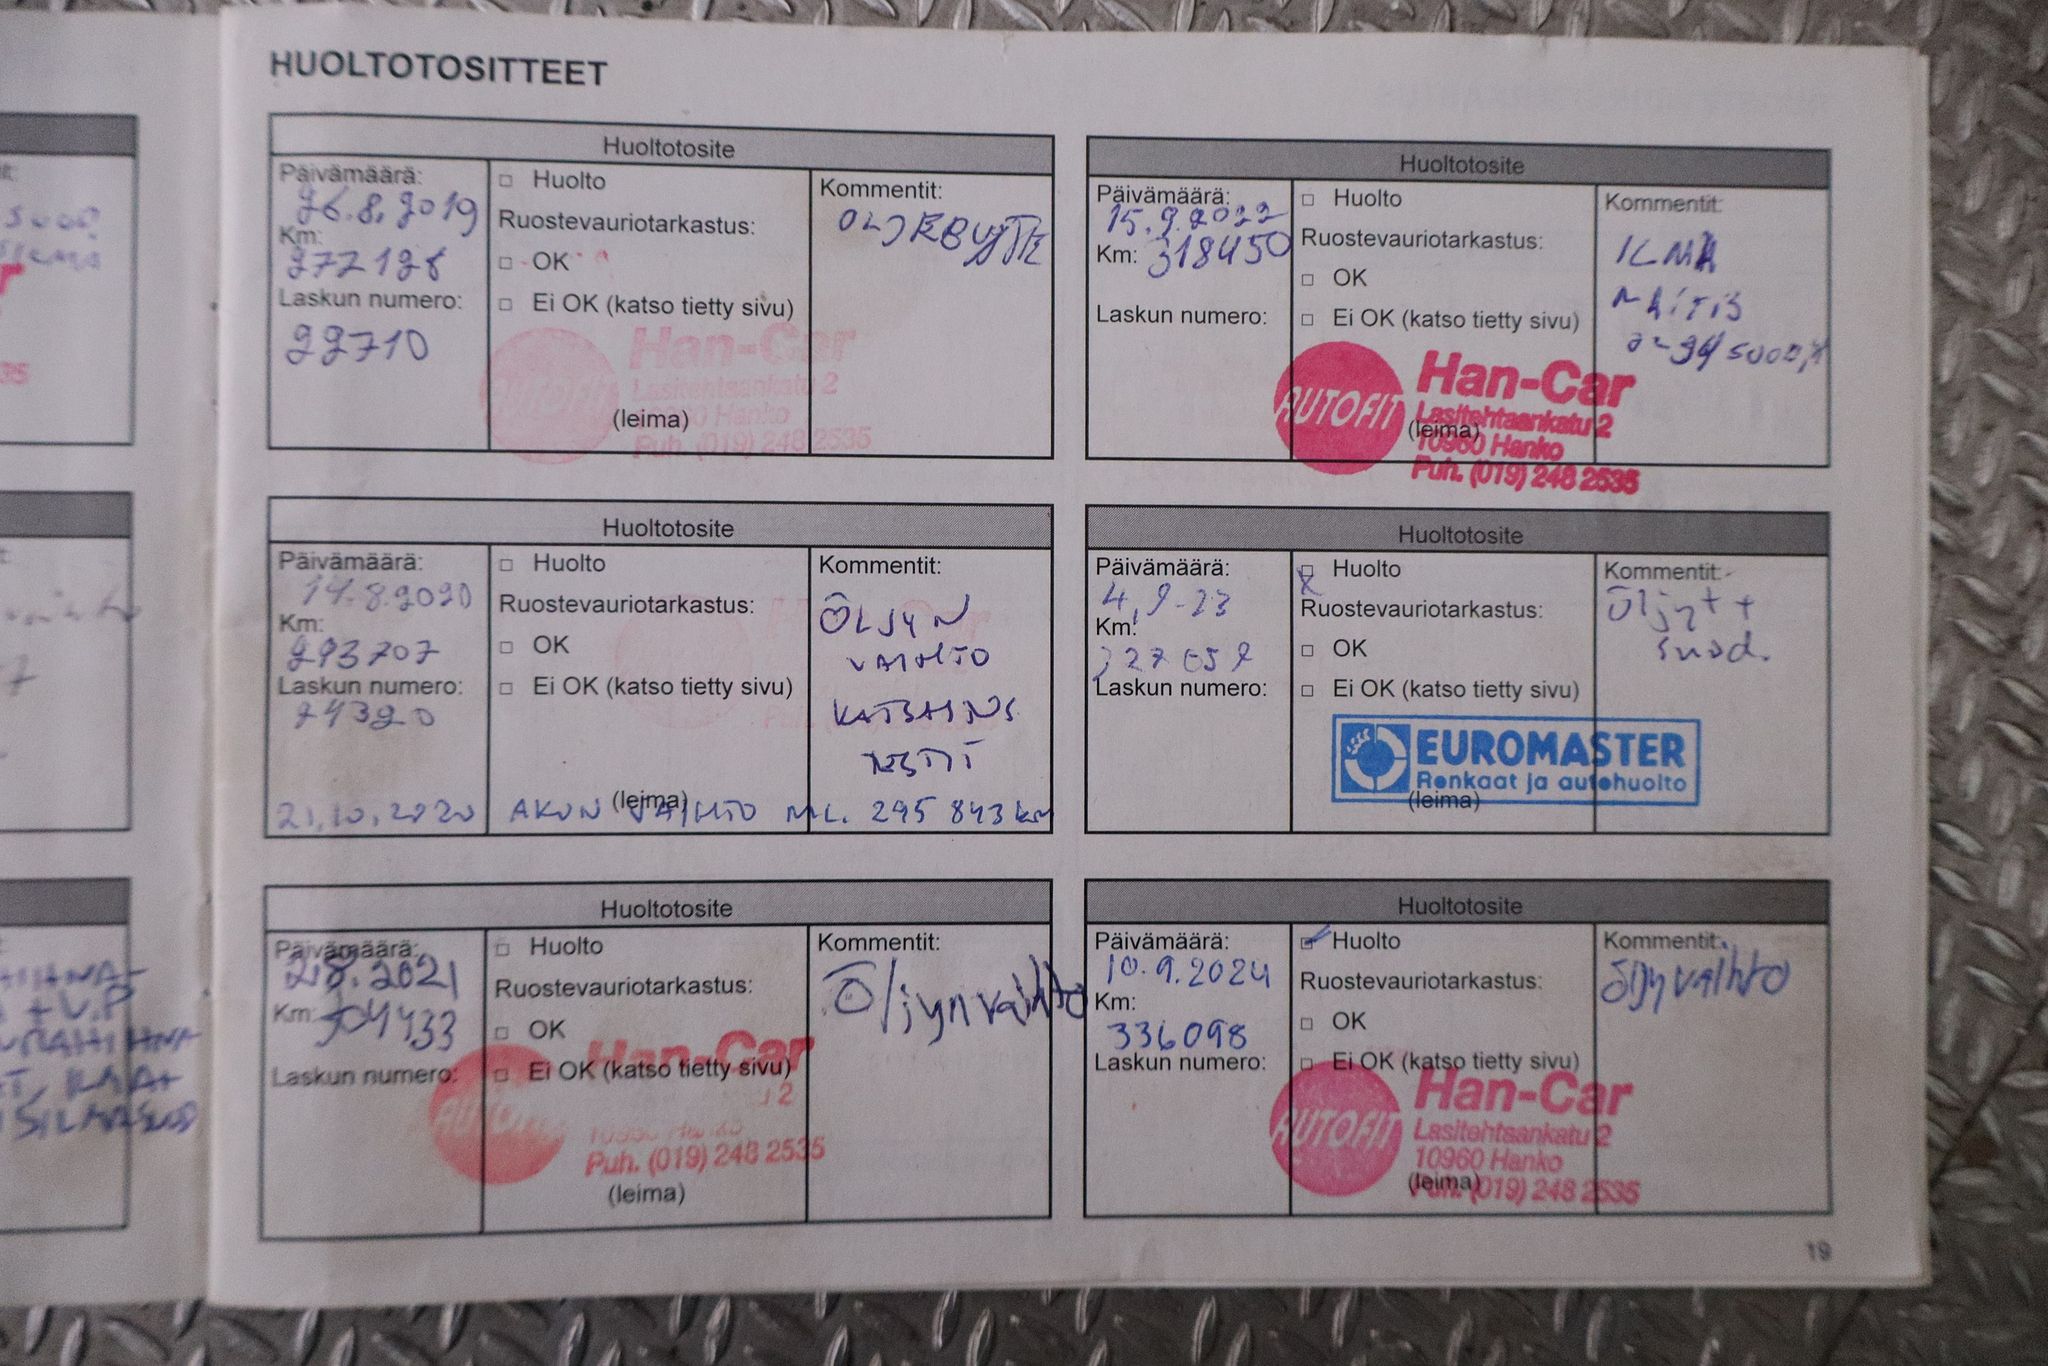 HUOLTOTOSITTEET
Huoltotosite
Päivämäärä:
26.8.2019
Km:
272128
Laskun numero:
22710
□ Huolto
Ruostevauriotarkastus:
□ OK
□ Ei OK (katso tietty sivu)
Han-Car
Lasitehtaankatu 2
Hanko
(leima)
Puh. (019) 248 2535
Kommentit:
OLJEBYTE
Huoltotosite
Päivämäärä:
14.8.2020
Km:
293707
Laskun numero:
24320
□ Huolto
Ruostevauriotarkastus:
□ OK
□ Ei OK (katso tietty sivu)
(leima)
Kommentit:
ÖLJYN
VAIHTO
KATSASTUS
TESTIT
21.10.2020 AKUN VAIHTO ML. 295 843 km
Huoltotosite
Päivämäärä:
2.8.2021
Km: 304433
Laskun numero:
□ Huolto
Ruostevauriotarkastus:
□ OK
□ Ei OK (katso tietty sivu)
Han-Car
2
10960 Hanko
Puh. (019) 248 2535
(leima)
Kommentit:
Öljynvaihto
Huoltotosite
Päivämäärä:
15.9.2022
Km: 318450
Laskun numero:
□ Huolto
Ruostevauriotarkastus:
□ OK
□ Ei OK (katso tietty sivu)
AUTOFIT
Han-Car
Lasitehtaankatu 2
(leima)
10960 Hanko
Puh. (019) 248 2535
Kommentit:
ILMA
Huoltotosite
Päivämäärä:
4.9-23
Km:
327052
Laskun numero:
□ Huolto
Ruostevauriotarkastus:
□ OK
□ Ei OK (katso tietty sivu)
EUROMASTER
Renkaat ja autohuolto
(leima)
Kommentit:
Öljyt +
suod.
Huoltotosite
Päivämäärä:
10.9.2024
Km:
336098
Laskun numero:
□ Huolto
Ruostevauriotarkastus:
□ OK
□ Ei OK (katso tietty sivu)
AUTOFIT
Han-Car
Lasitehtaankatu 2
10960 Hanko
(leima)
Puh. (019) 248 2535
Kommentit:
öljyvaihto
19